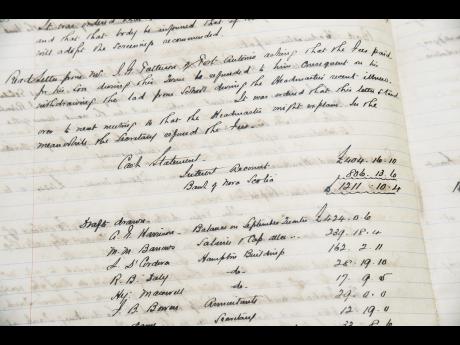 It was ordered that
and that that body be informed that
will adopt the screening recommended.
Read letter from Mr J. A. Patterson of Port Antonio asking that the fees paid
for his son during this Term be refunded to him. Consequent on his
withdrawing the lad from School during the Headmasters recent illness.
It was ordered that this letter stand
over to next meeting so that the Headmaster might explain. In the
meanwhile the Secretary refused the fees.
Cash Statement.
Interest Account £404.16.10
Bank of Nova Scotia 806.13.6
£1211.10.4
Drafts drawn.
A. E. Harrison - Balance on September £424.0.6
M. M. Barrows Salaries & Cap 239.18.4
J. D'Cordova Hampton Buildings 162.2.11
R. B. Daly do 28.19.10
Hy. Maxwell do 17.9.5
J. B. Bowen Accountants 29.0.0
Secretary 12.19.0